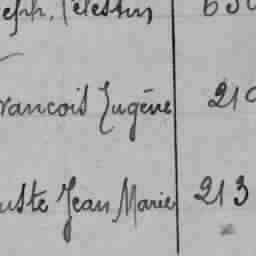 eph, Célestin 630
rancois Eugène 210
uste Jean Marie 213